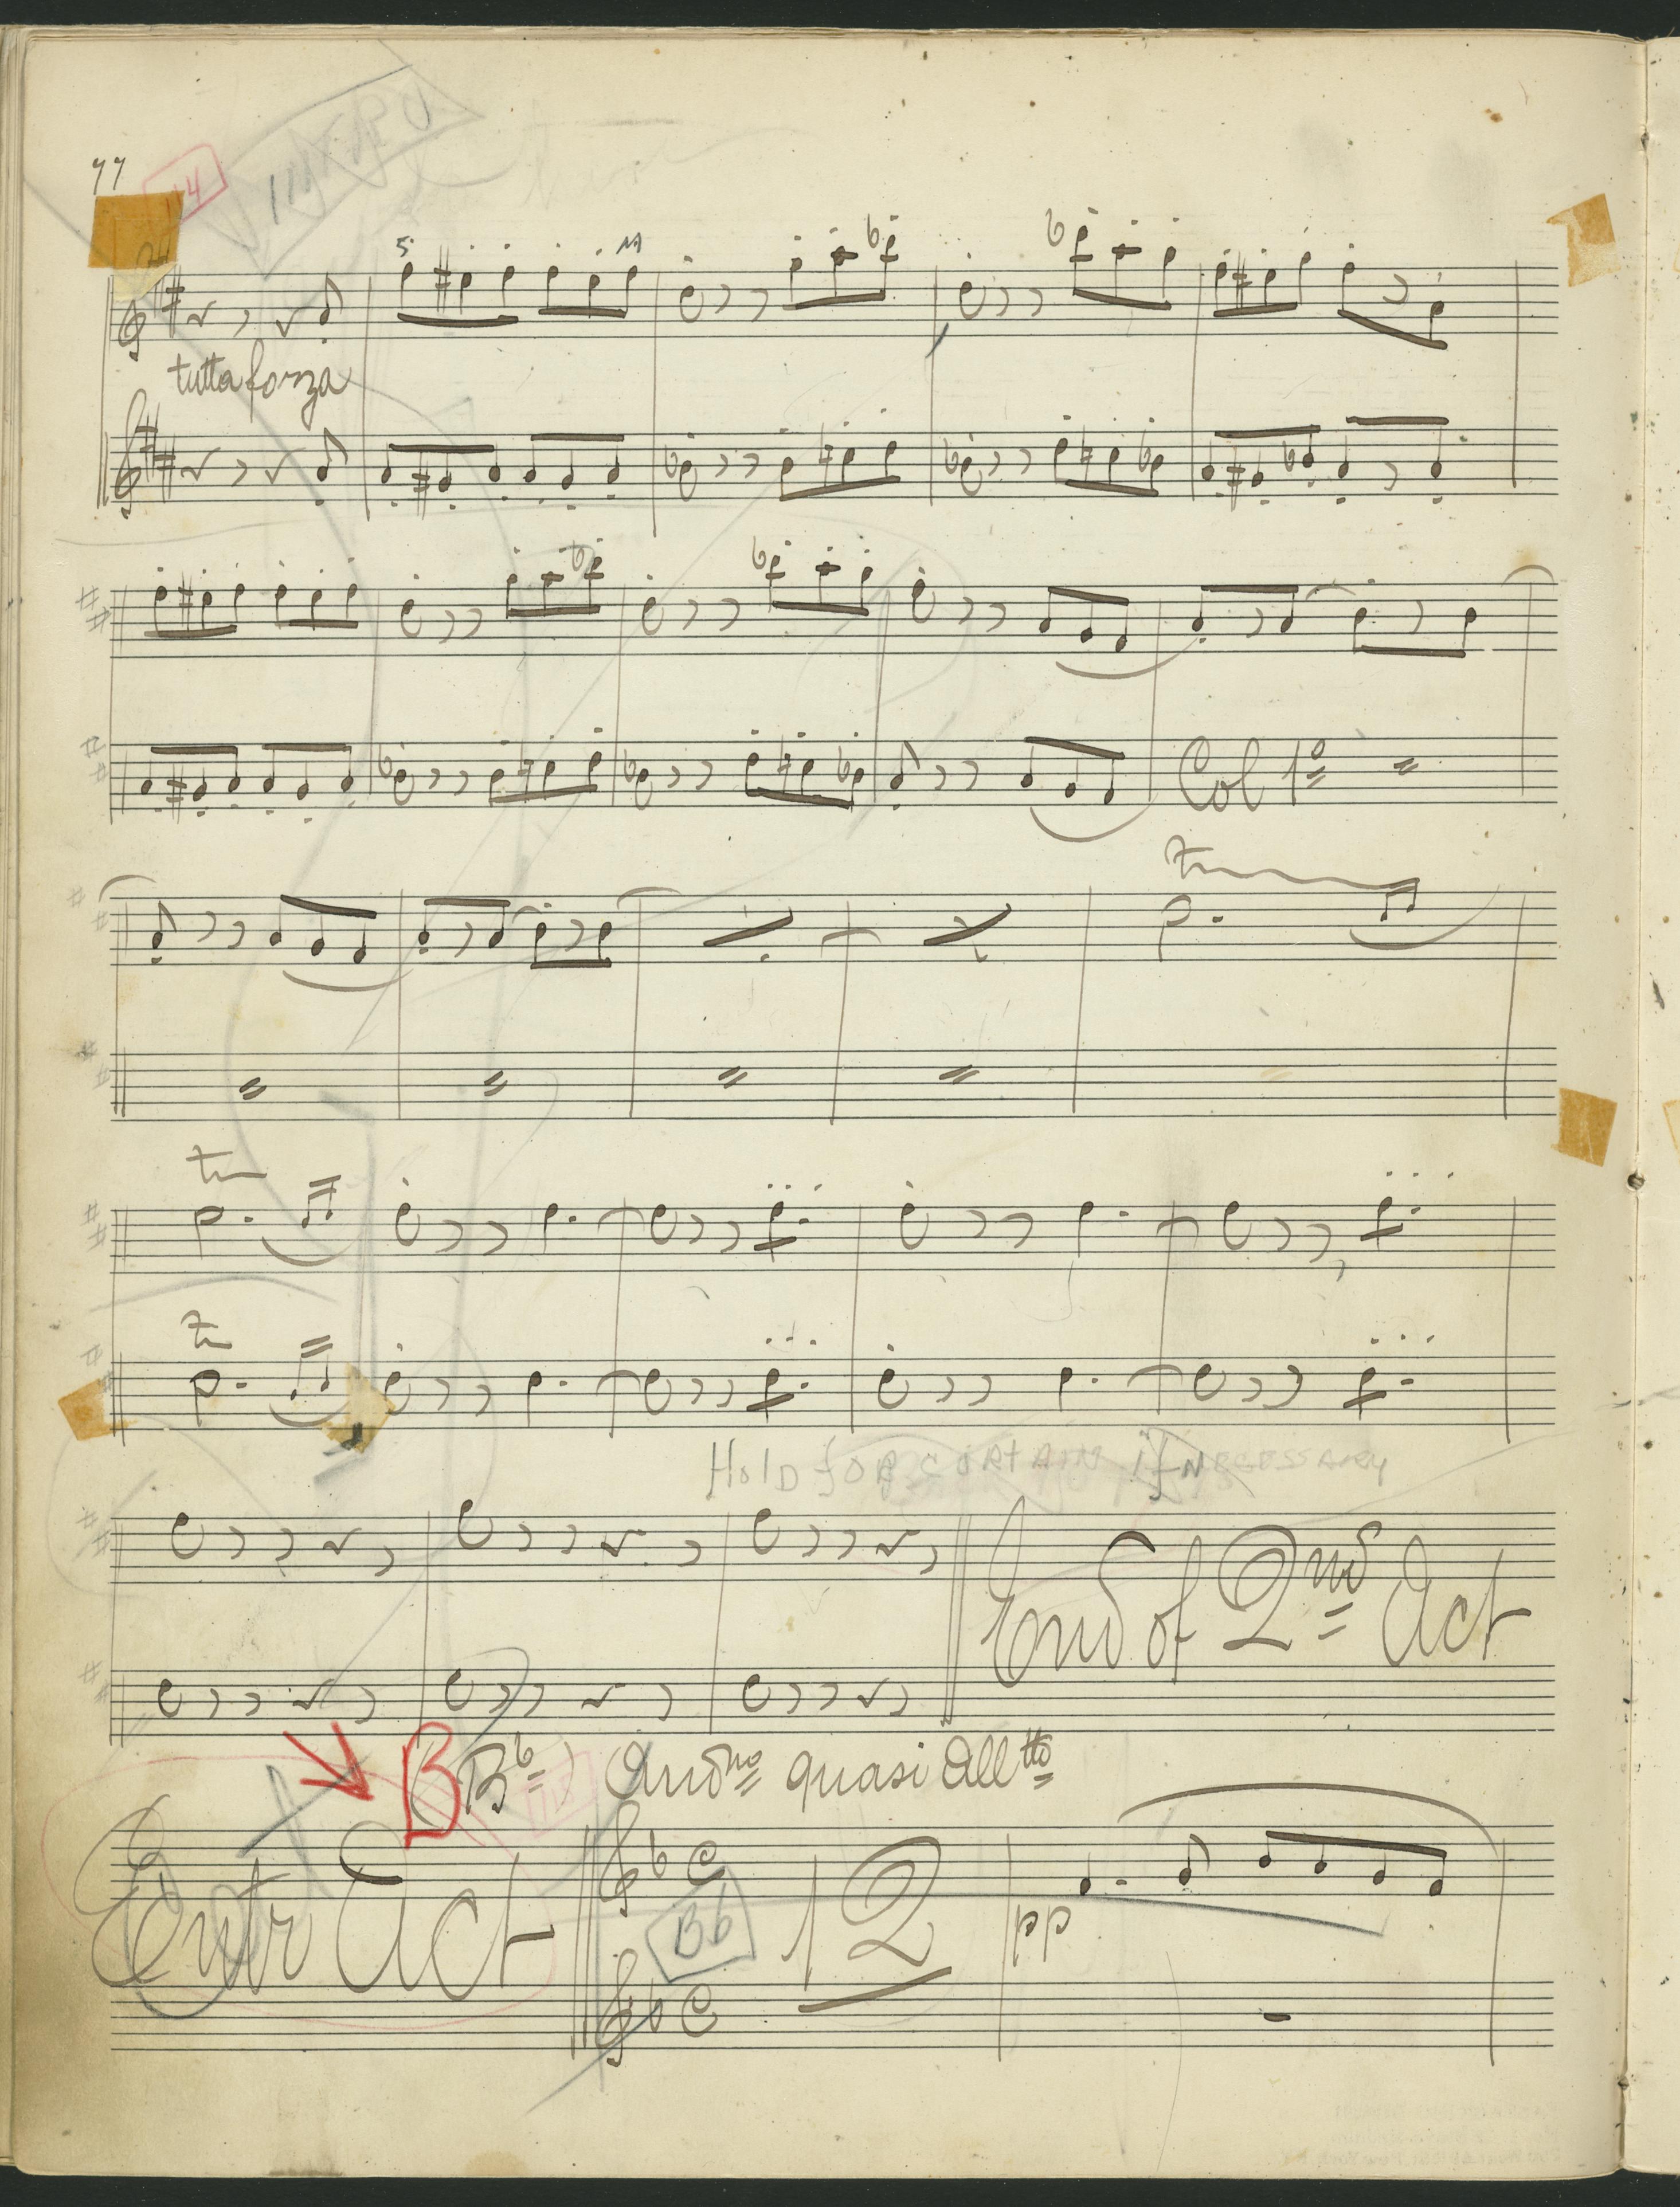 77
114
tutta forza
Col 1º
tr
tr
tr
HOLD fOR CURTAIN if NECESSARY
End of 2nd Act
B Bb) Andno quasi Alltto
Entr Act
12
Bb
pp